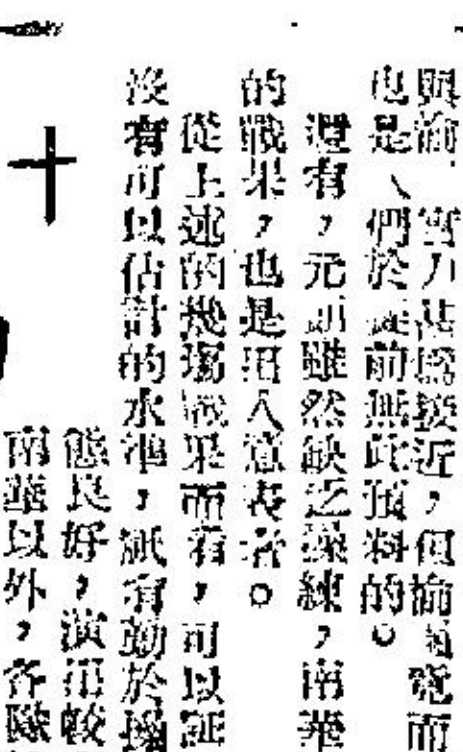 與渝、實力甚爲接近，但渝電而
也是人們於從前無此預料的。
還有，元朗雖然缺乏操練，南華
的戰果，也是出人意表者。
從上述的幾場戰果而看，可以証
沒有可以估計的水準，祇有勤於操
態良好，演出較
南華以外，各隊
十